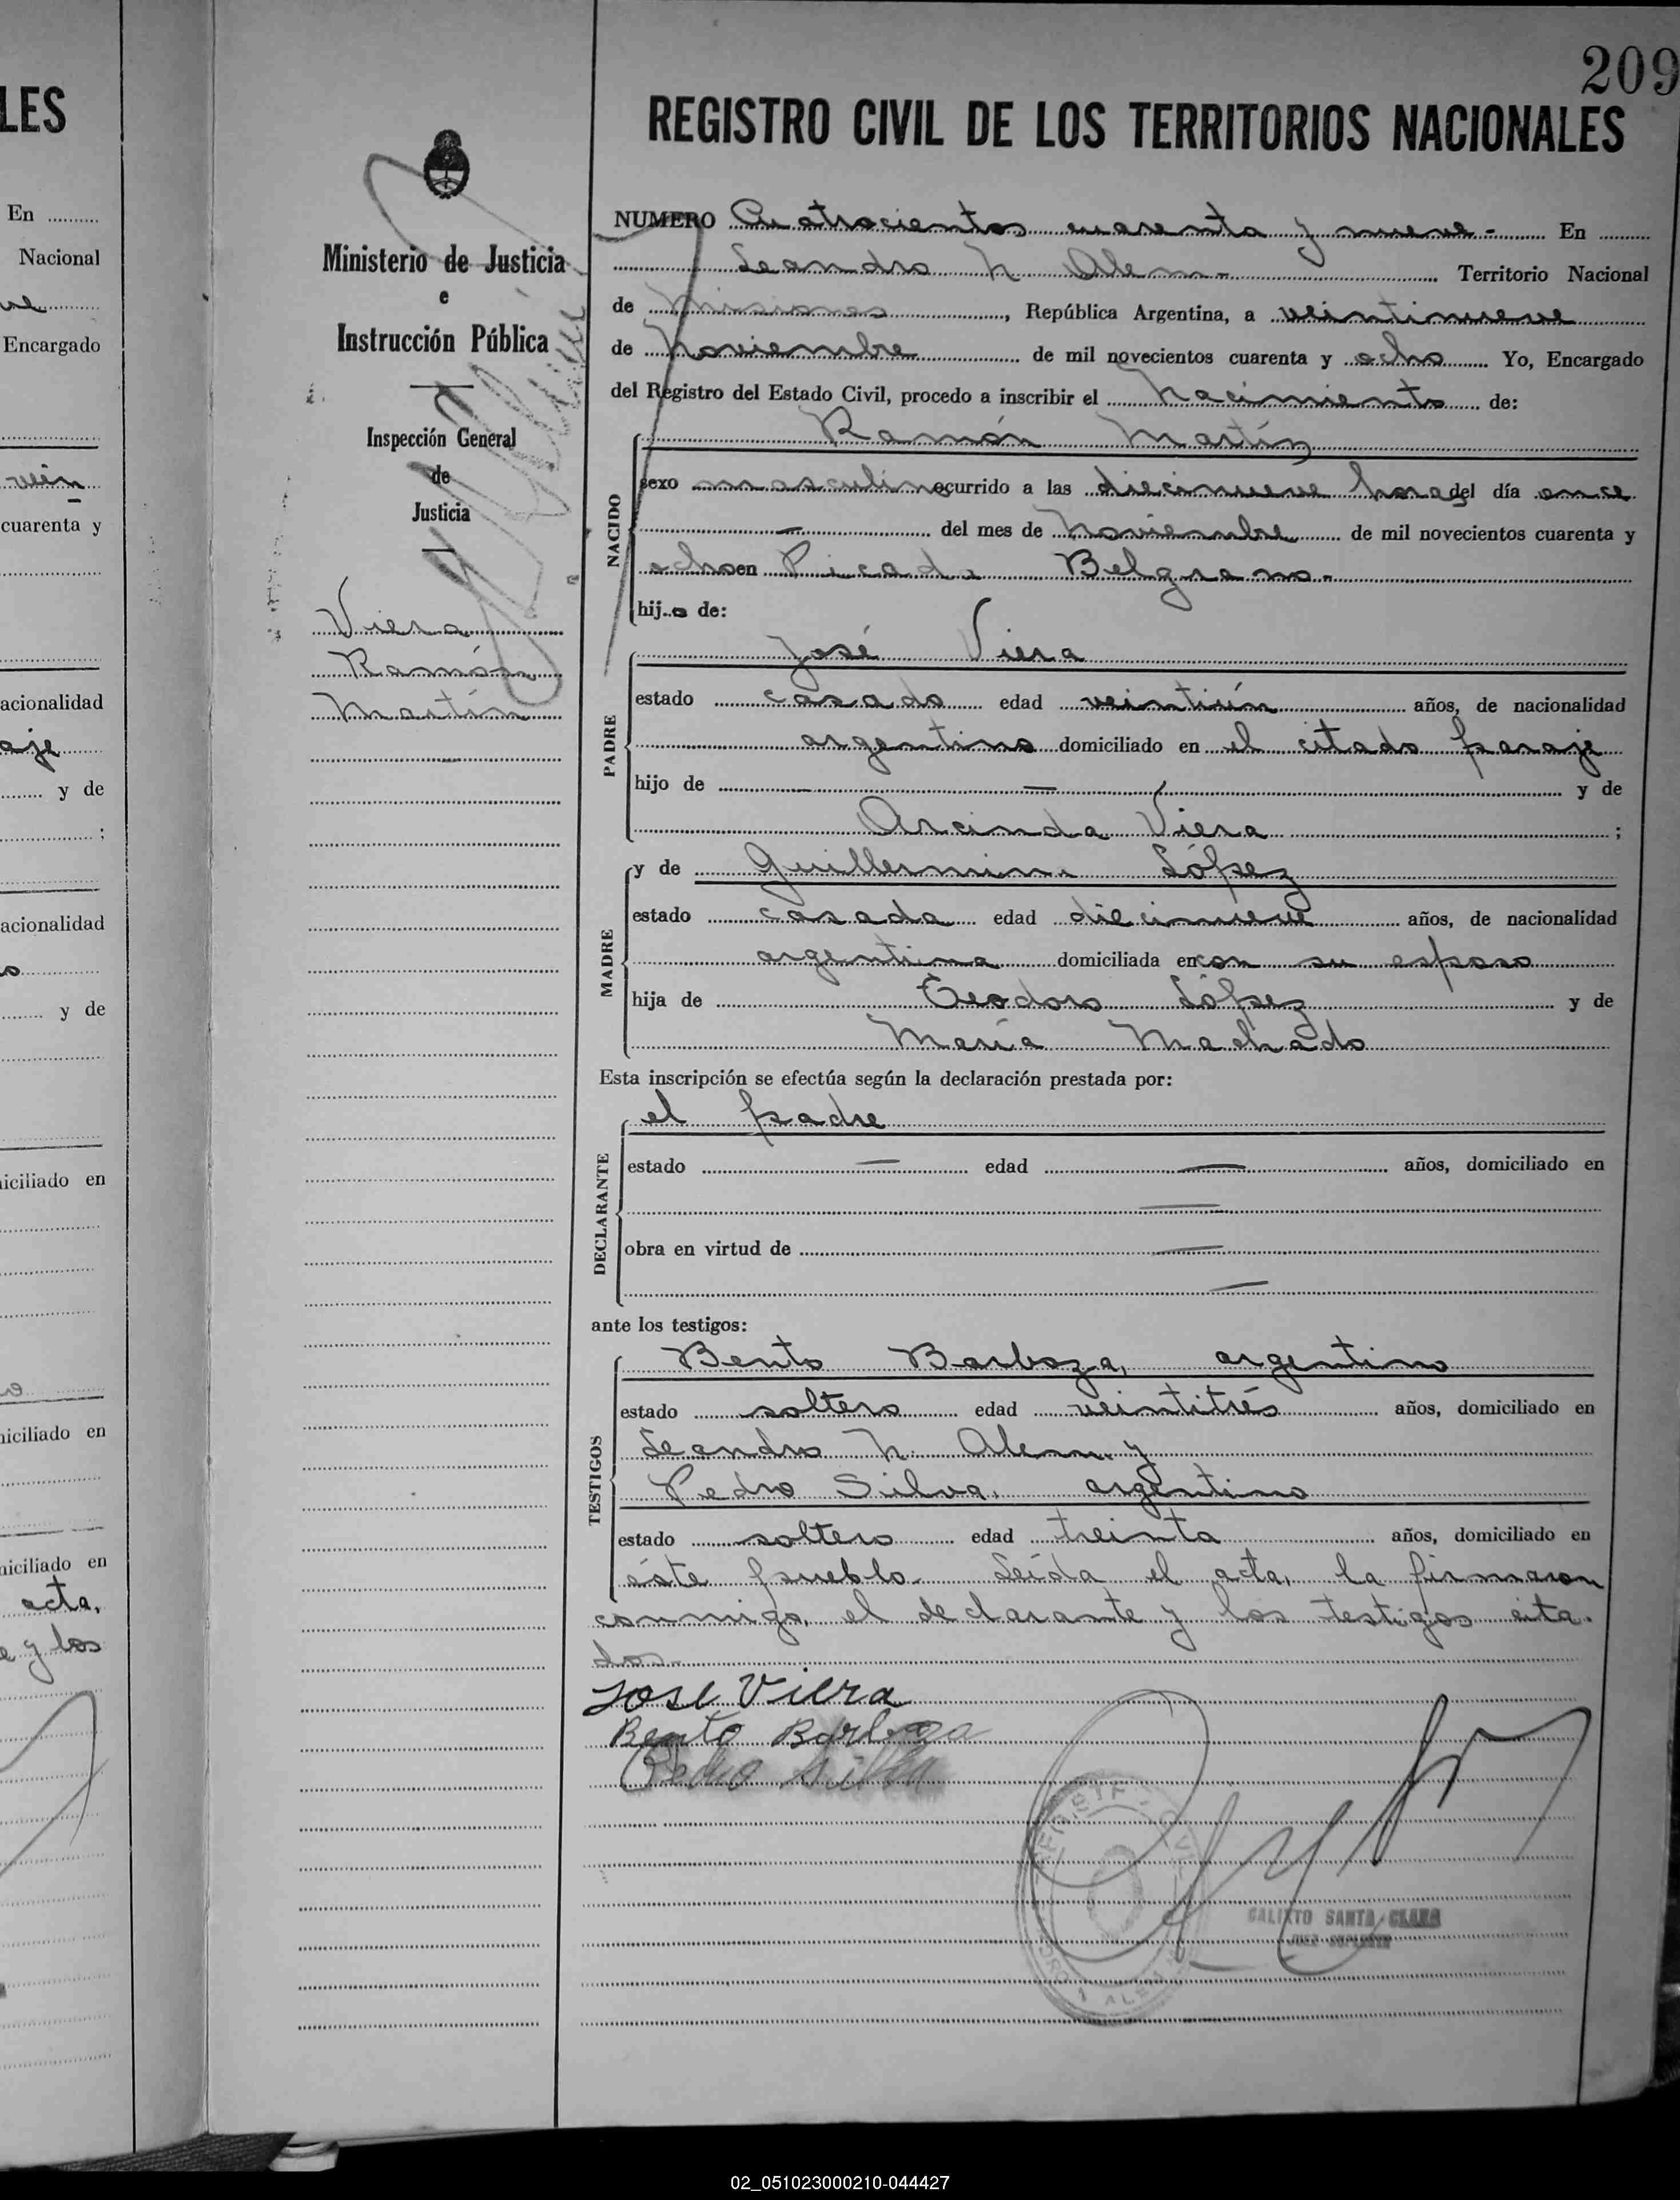 209
LES
REGISTRO CIVIL DE LOS TERRITORIOS NACIONALES
En
Nacional
Encargado
vein
cuarenta y
acionalidad
aje
y de
;
acionalidad
y de
iciliado en
iciliado en
niciliado en
acta,
e y los
Ministerio de Justicia
e
Instrucción Pública
Inspección General
de
Justicia
Viera
Ramón
Martín
NUMERO Cuatrocientos cuarenta y nueve - En
Leandro N Alem - Territorio Nacional
de Misiones, República Argentina, a veintinueve
de Noviembre de mil novecientos cuarenta y ocho Yo, Encargado
del Registro del Estado Civil, procedo a inscribir el Nacimiento de:
NACIDO
Ramón Martín
sexo masculino ocurrido a las diecinueve horas del día once
— del mes de Noviembre de mil novecientos cuarenta y
ocho en Picada Belgrano-
hijo de:
PADRE
José Viera
estado casado edad veintiún años, de nacionalidad
argentino domiciliado en el citado paraje
hijo de — y de
Arcinda Viera ;
MADRE
y de Guillermina López
estado casada edad diecinueve años, de nacionalidad
argentina domiciliada en con su esposo
hija de Teodoro López y de
María Machado
Esta inscripción se efectúa según la declaración prestada por:
DECLARANTE
el padre
estado — edad — años, domiciliado en
—
obra en virtud de —
—
ante los testigos:
TESTIGOS
Bento Barboza, argentino
estado soltero edad veintitrés años, domiciliado en
Leandro N. Alem y
Pedro Silva, argentino
estado soltero edad treinta años, domiciliado en
éste pueblo. Leída el acta, la firmaron
conmigo, el declarante y los testigos cita-
dos.-
Jose Viera
Bento Barboza
Pedro Silva
CALIXTO SANTA CLARA
JUEZ SUPLENTE
02_051023000210-044427